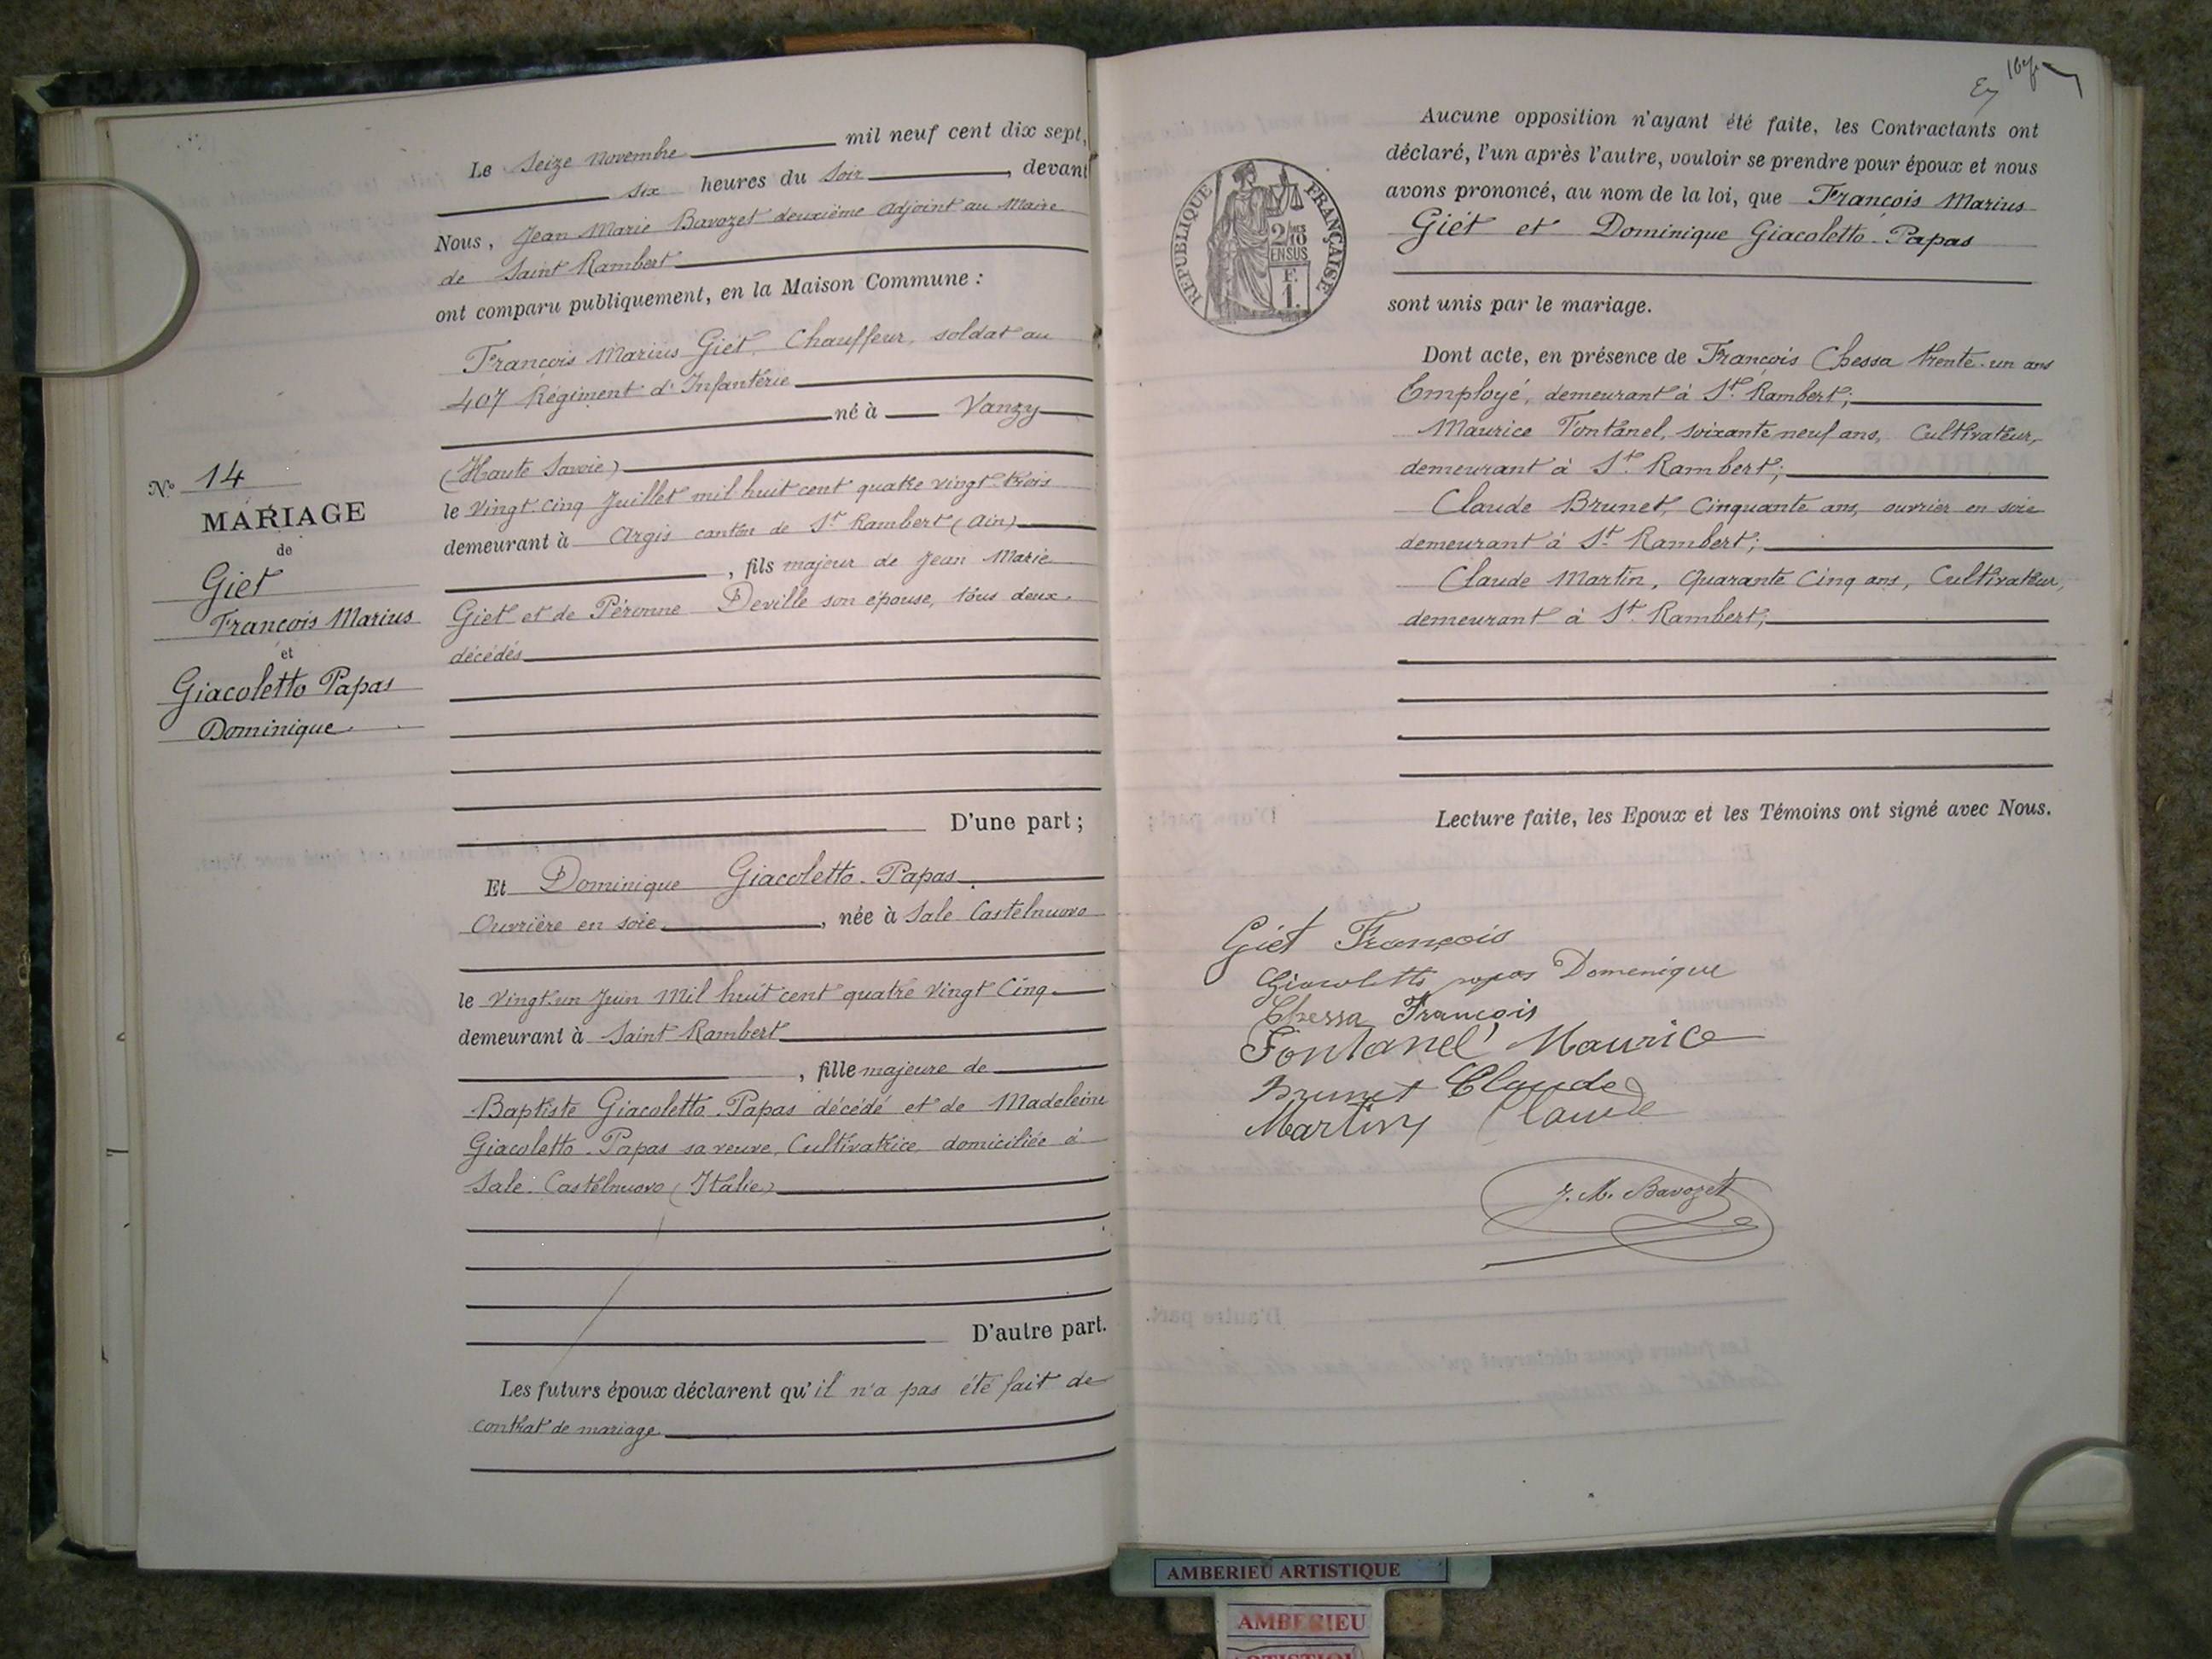 Le Seize Novembre mil neuf cent dix sept,
six heures du Soir, devant
Nous, Jean Marie Bavozet deuxième Adjoint au Maire
de Saint Rambert
ont comparu publiquement, en la Maison Commune :
François Marius Giet, Chauffeur, soldat au
407 Régiment d'Infanterie
né à Vanzy
(Haute Savoie)
le Vingt-Cinq Juillet mil huit cent quatre vingt-trois
demeurant à Argis canton de St Rambert (Ain)
, fils majeur de Jean Marie
Giet et de Péronne Deville son épouse, tous deux
décédés
N° 14
MARIAGE
de
Giet
François Marius
et
Giacoletto Papas
Dominique
D'une part ;
Et Dominique Giacoletto-Papas
Ouvrière en soie, née à Sale Castelnuovo
le Vingt-un Juin Mil huit cent quatre Vingt Cinq
demeurant à Saint Rambert
, fille majeure de
Baptiste Giacoletto-Papas décédé et de Madeleine
Giacoletto-Papas sa veuve, Cultivatrice, domiciliée à
Sale-Castelnuovo (Italie)
D'autre part.
Les futurs époux déclarent qu'il n'a pas été fait de
contrat de mariage
REPUBLIQUE FRANÇAISE
2/10
EN SUS
F.
1.
Aucune opposition n'ayant été faite, les Contractants ont
déclaré, l'un après l'autre, vouloir se prendre pour époux et nous
avons prononcé, au nom de la loi, que François Marius
Giet et Dominique Giacoletto-Papas
sont unis par le mariage.
Dont acte, en présence de François Chessa trente-un ans
Employé, demeurant à St. Rambert;
Maurice Fontanel, soixante neuf ans, Cultivateur,
demeurant à St. Rambert;
Claude Brunet, Cinquante ans, ouvrier en soie
demeurant à St. Rambert;
Claude Martin, Quarante Cinq ans, Cultivateur,
demeurant à St. Rambert;
Lecture faite, les Epoux et les Témoins ont signé avec Nous.
Giet François
Giacoletto papas Domenique
Chessa François
Fontanel Maurice
Brunet Claude
Martin Claude
J. M. Bavozet
AMBERIEU ARTISTIQUE
AMBERIEU